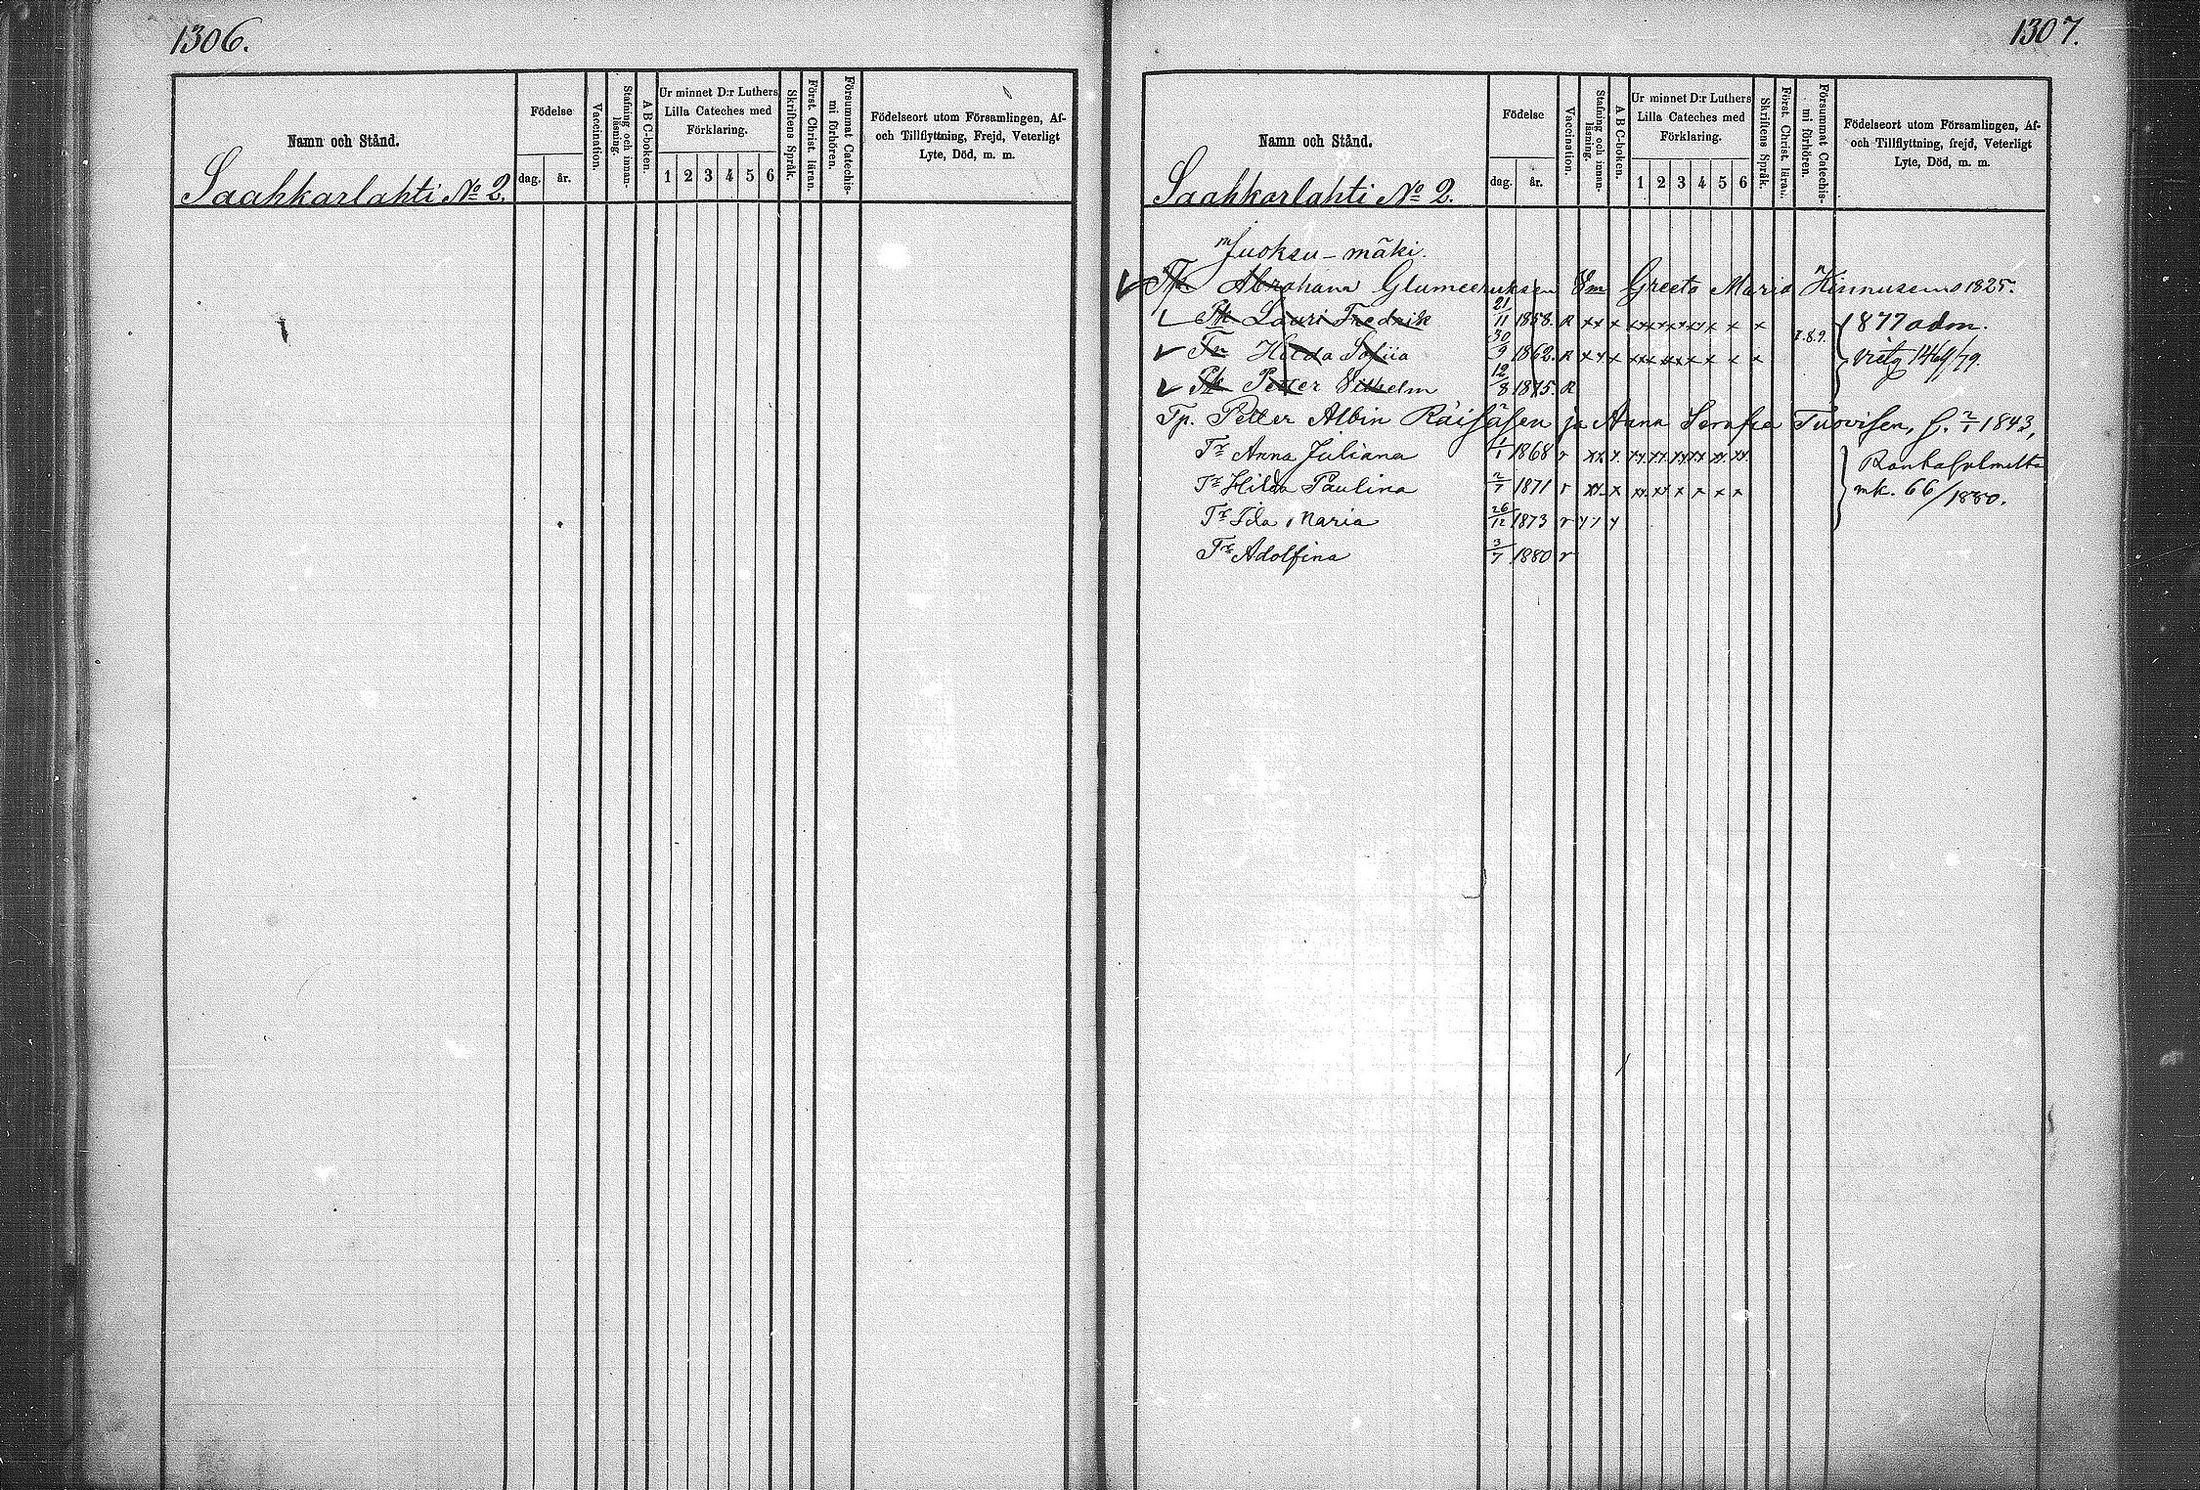 1306.
Namn och Stånd.
Födelse
dag.
år.
Vaccination.
Stafning och innan-
läsning.
A B C-boken.
Ur minnet D:r Luthers
Lilla Cateches med
Förklaring.
1 2 3 4 5 6
Skriftens Språk.
Först. Christ. läran.
Försummat Catechis-
mi förhören.
Födelseort utom Församlingen, Af-
och Tillflyttning, Frejd, Veterligt
Lyte, Död, m. m.
Saahkarlahti No 2.
1307.
Namn och Stånd.
Födelse
dag.
år.
Vaccination.
Stafning och innan-
läsning.
A B C-boken.
Ur minnet D:r Luthers
Lilla Cateches med
Förklaring.
1 2 3 4 5 6
Skriftens Språk.
Först. Christ. läran.
Försummat Catechis-
mi förhören.
Födelseort utom Församlingen, Af-
och Tillflyttning, frejd, Veterligt
Lyte, Död, m. m.
Saahkarlahti No 2.
Juoksu-mäki.
Tp. Abraham Glumeruksen Vm Greeta Maria Hinnusen 1825.
Pk Lauri Fredrik 21/11 1858. R xx x xx xx xx xx x x x 1877 adm.
Tr Hilda Sofiia 30/9 1862. R xx x xx xx xx x x x 7.8.9.
Pk Petter Vilhelm 12/8 1875. R
Tp. Petter Albin Räisäsen ja Anna Serafia Tuovisen, s. 2/1 1843,
Tr Anna Juliana 1/1 1868 r xx x xx xx xx xx xx xx
Tr Hilda Paulina 2/7 1871 r xx x xx xx x x x x mk. 66/1880.
Tr Ida Maria 26/12 1873 r x x x
Tr Adolfina 3/7 1880 r